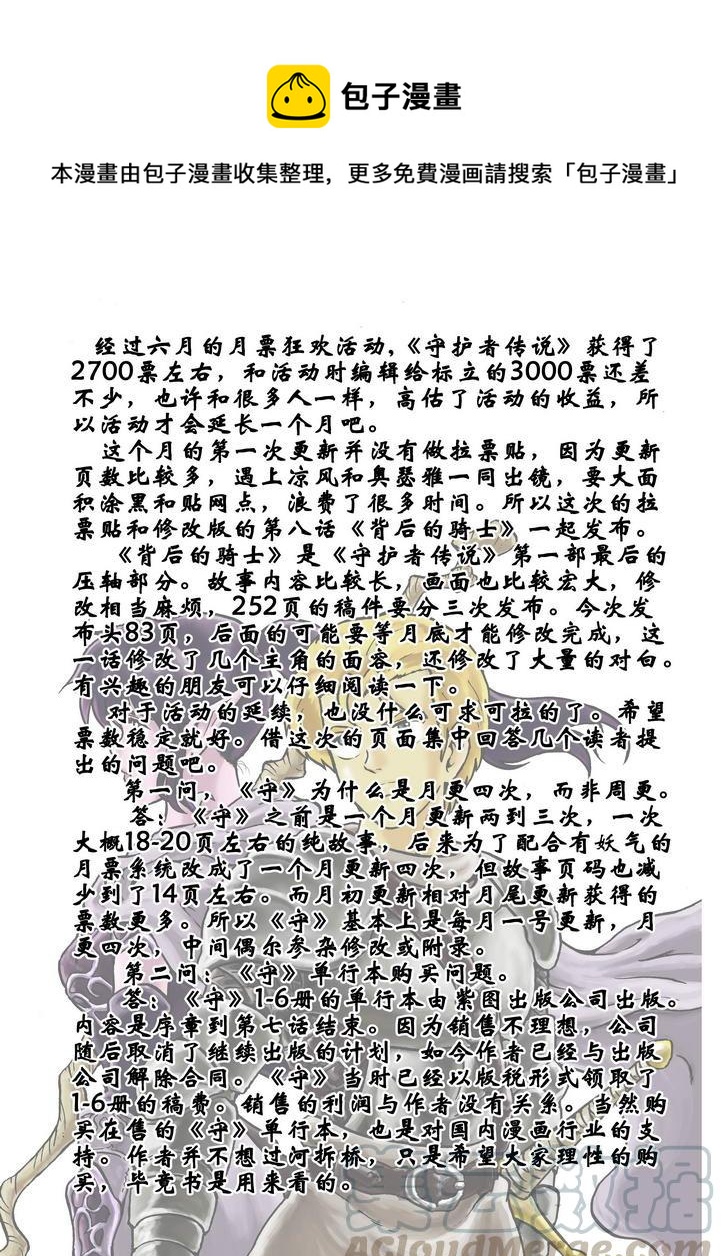 包子漫畫
本漫畫由包子漫畫收集整理，更多免費漫画請搜索「包子漫畫」
经过六月的月票狂欢活动，《守护者传说》获得了
2700票左右，和活动时编辑给标立的3000票还差
不少，也许和很多人一样，高估了活动的收益，所
以活动才会延长一个月吧。
这个月的第一次更新并没有做拉票贴，因为更新
页数比较多，遇上凉风和奥瑟雅一同出镜，要大面
积涂黑和贴网点，浪费了很多时间。所以这次的拉
票贴和修改版的第八话《背后的骑士》一起发布。
《背后的骑士》是《守护者传说》第一部最后的
压轴部分。故事内容比较长，画面也比较宏大，修
改相当麻烦，252页的稿件要分三次发布。今次发
布头83页，后面的可能要等月底才能修改完成，这
一话修改了几个主角的面容，还修改了大量的对白。
有兴趣的朋友可以仔细阅读一下。
对于活动的延续，也没什么可求可拉的了。希望
票数稳定就好。借这次的页面集中回答几个读者提
出的问题吧。
第一问，《守》为什么是月更四次，而非周更。
答：《守》之前是一个月更新两到三次，一次
大概18-20页左右的纯故事，后来为了配合有妖气的
月票系统改成了一个月更新四次，但故事页码也减
少到了14页左右。而月初更新相对月尾更新获得的
票数更多。所以《守》基本上是每月一号更新，月
更四次，中间偶尔参杂修改或附录。
第二问：《守》单行本购买问题。
答：《守》1-6册的单行本由紫图出版公司出版。
内容是序章到第七话结束。因为销售不理想，公司
随后取消了继续出版的计划，如今作者已经与出版
公司解除合同。《守》当时已经以版税形式领取了
1-6册的稿费。销售的利润与作者没有关系。当然购
买在售的《守》单行本，也是对国内漫画行业的支
持。作者并不想过河拆桥，只是希望大家理性的购
买，毕竟书是用来看的。
AcloudMerge.com